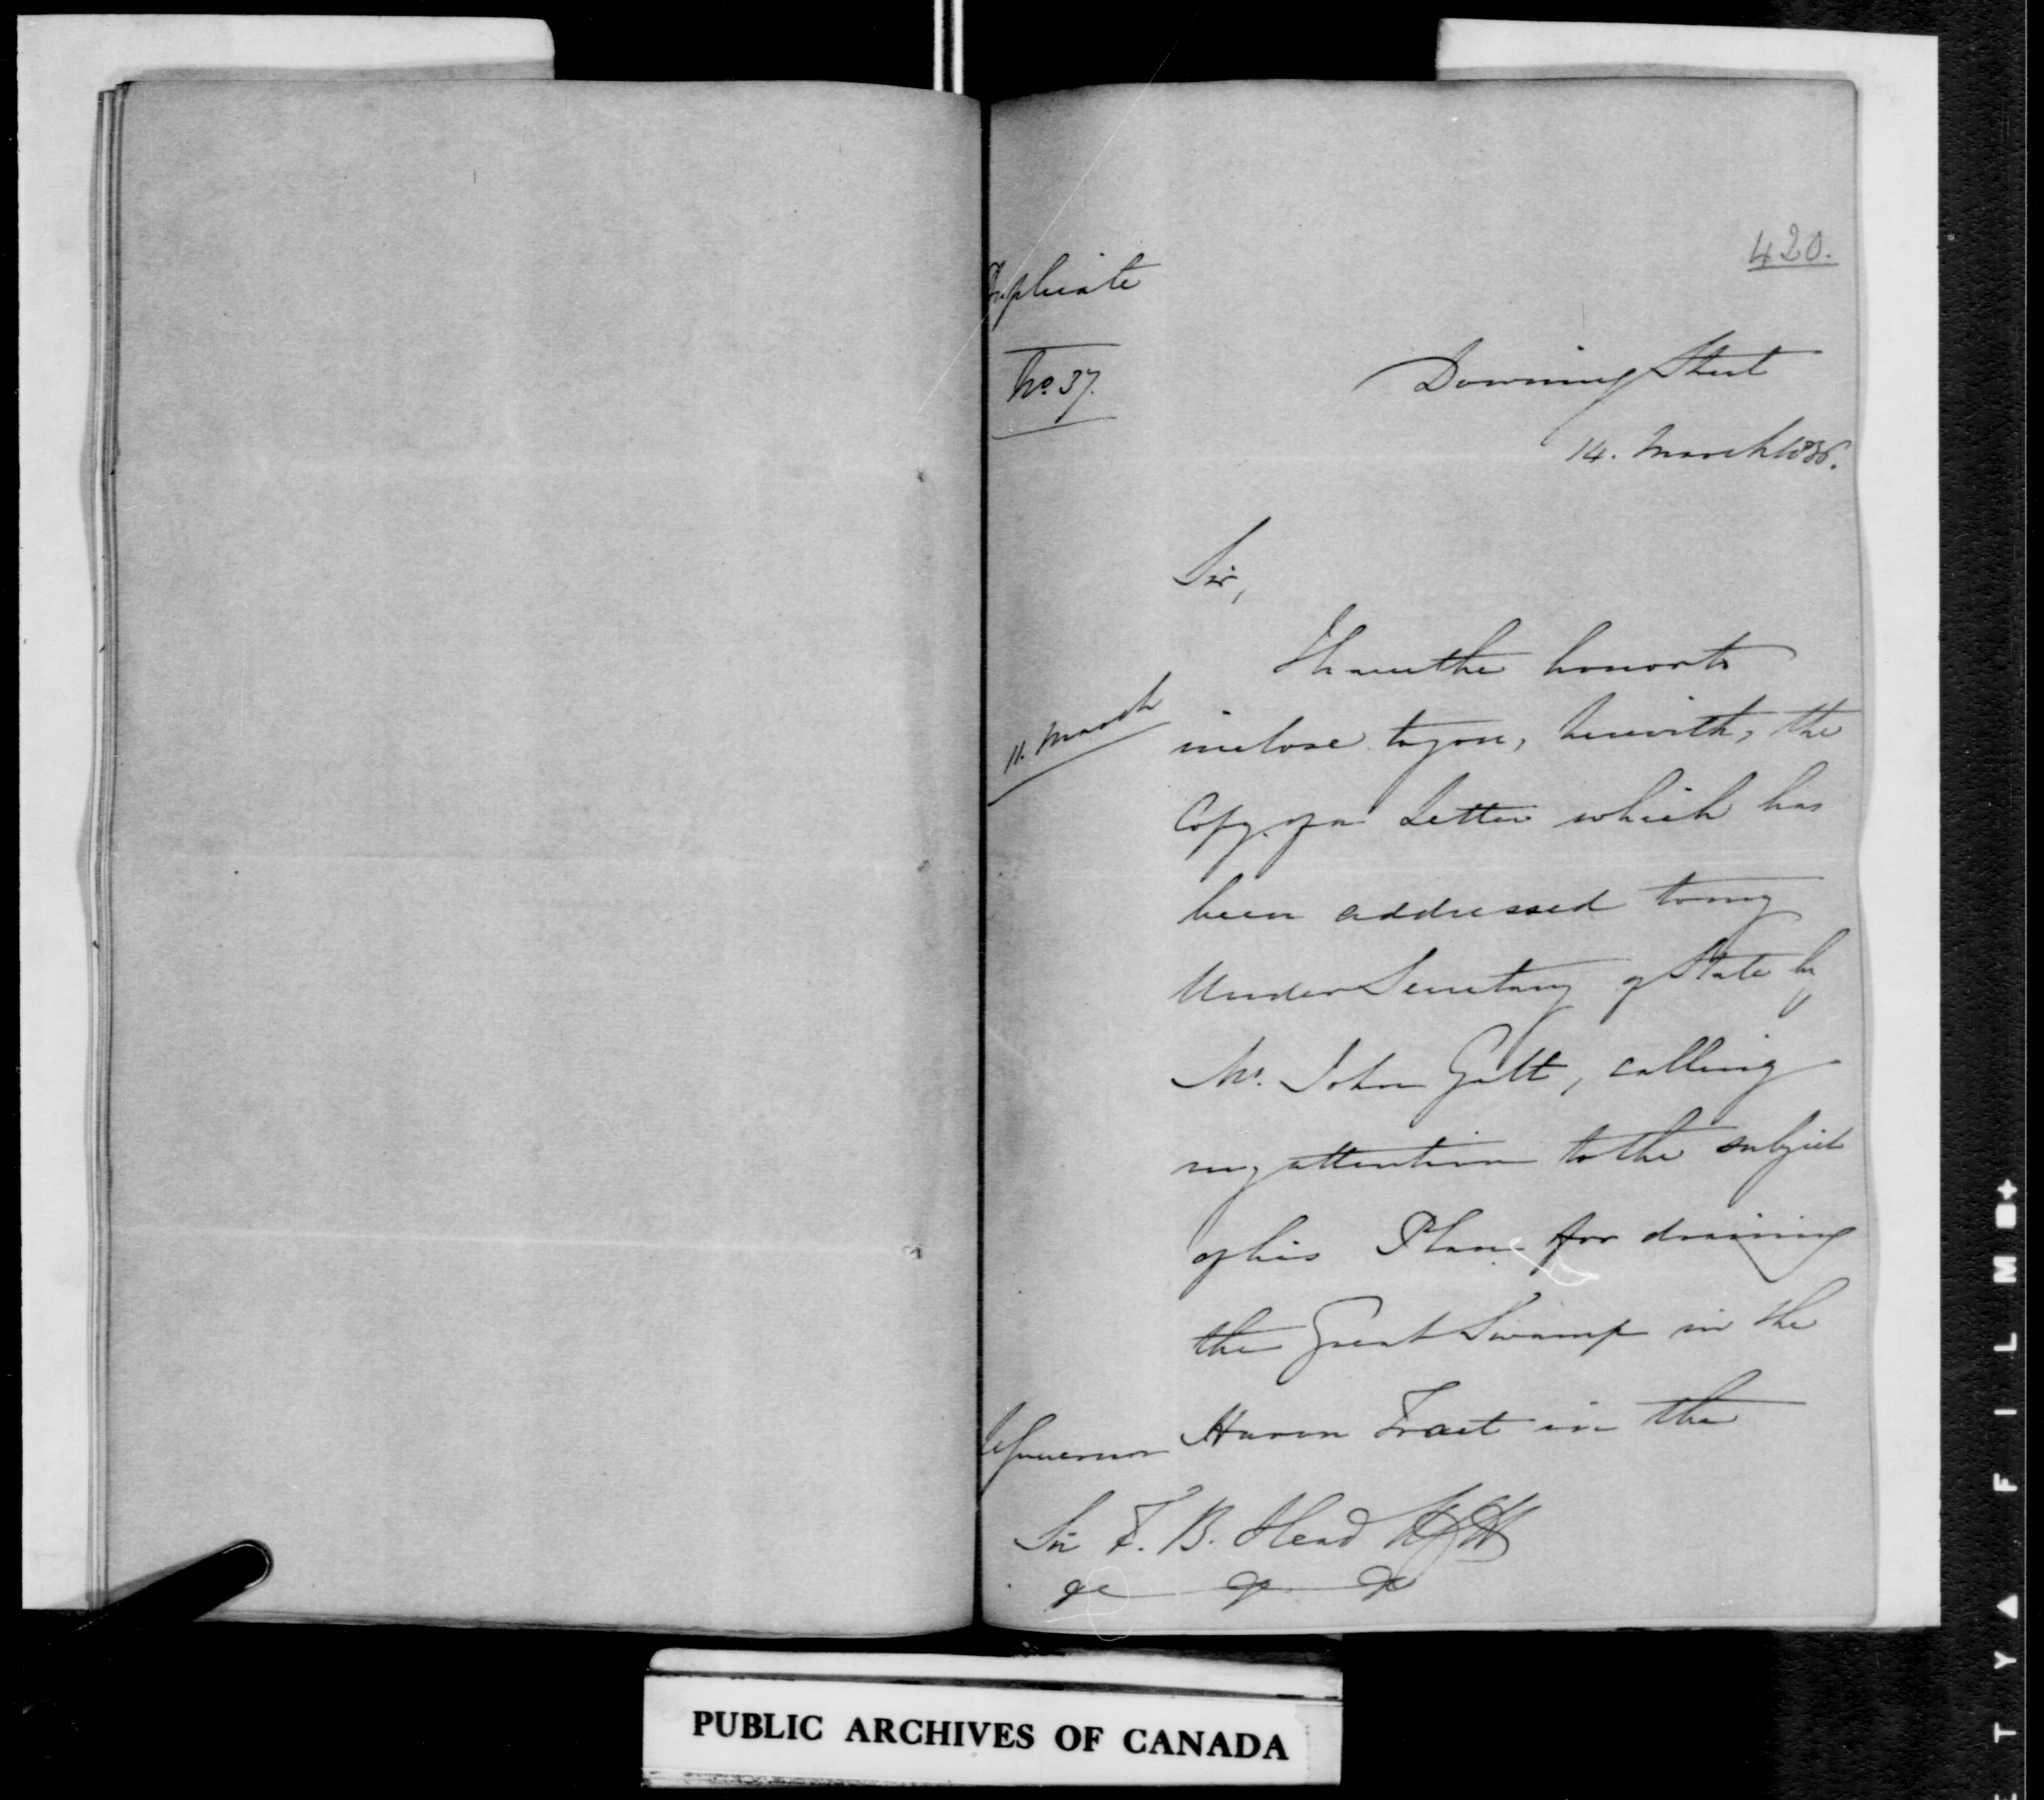 420.
Duplicate
No. 37.
Downing Street
14. March 1836.
Sir,
I have the honor to
11. March
inclose to you, herewith, the
Copy of a Letter which has
been addressed to my
Under Secretary of State by
Mr. John Galt, calling
my attention to the subject
of his Plan for draining
the Great Swamp in the
Huron Tract in the
Lt Governor
Sir F. B. Head
&c &c &c
PUBLIC ARCHIVES OF CANADA
FILM